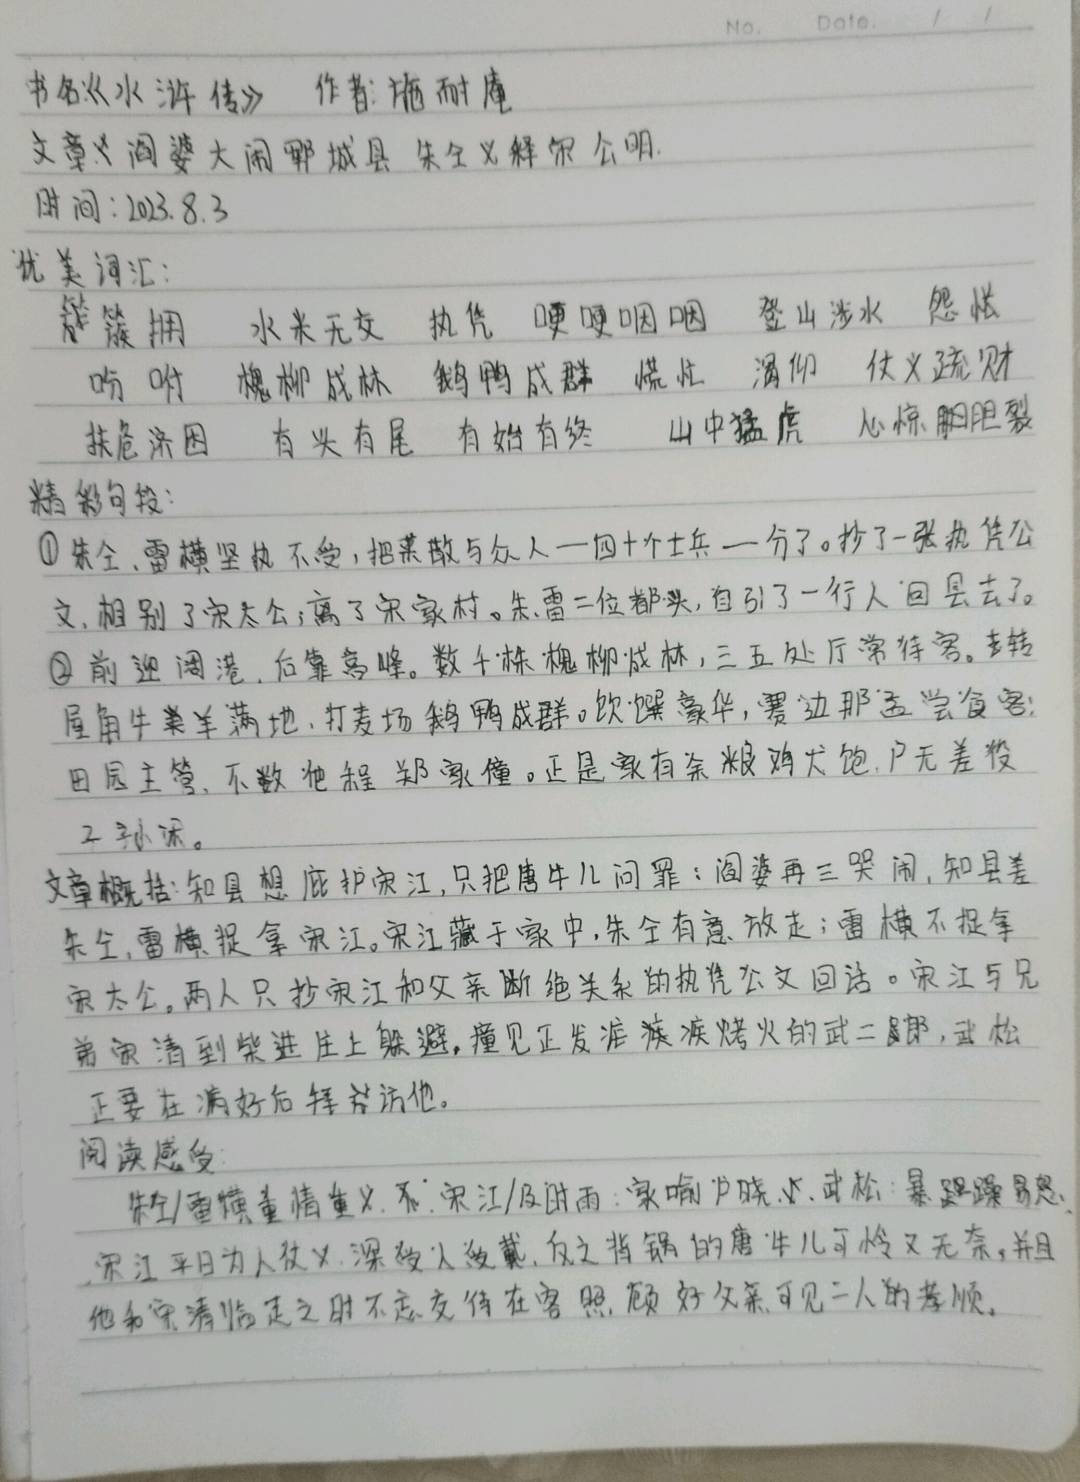 No. Date. / /
书名:《水浒传》 作者:施耐庵
文章:阎婆大闹郓城县 朱仝义释宋公明.
时间:2023.8.3
优美词汇:
簇簇拥 水米无交 执凭 哽哽咽咽 登山涉水 怨怅
吩咐 槐柳成林 鹅鸭成群 慌忙 渴仰 仗义疏财
扶危济困 有头有尾 有始有终 山中猛虎 心惊胆裂
精彩句段:
①朱仝、雷横坚执不受,把来散与众人—四十个士兵—分了。抄了一张执凭公
文,相别了宋太公;离了宋家村。朱、雷二位都头,自引了一行人回县去了。
②前迎阔港,后靠高峰。数千株槐柳成林,三五处厅常待客。转
屋角牛羊满地,打麦场鹅鸭成群。饮馔豪华,赛过那孟尝食客;
田园主管,不数他程郑家僮。正是家有余粮鸡犬饱,户无差役
子孙闲。
文章概括:知县想庇护宋江,只把唐牛儿问罪;阎婆再三哭闹,知县差
朱仝,雷横捉拿宋江。宋江藏于家中,朱仝有意放走;雷横不捉拿
宋太公。两人只抄宋江和父亲断绝关系的执凭公文回话。宋江与兄
弟宋清到柴进庄上躲避。撞见正发疟疾烤火的武二郎,武松
正要在病好后拜访他。
阅读感受:
朱仝/雷横重情重义. 宋江/及时雨:家喻户晓. 武松:暴躁易怒.
宋江平日为人仗义.深受人爱戴.反之背锅的唐牛儿可怜又无奈。并且
他和宋清临走之时不忘交待在客照顾好父亲可见二人的孝顺。